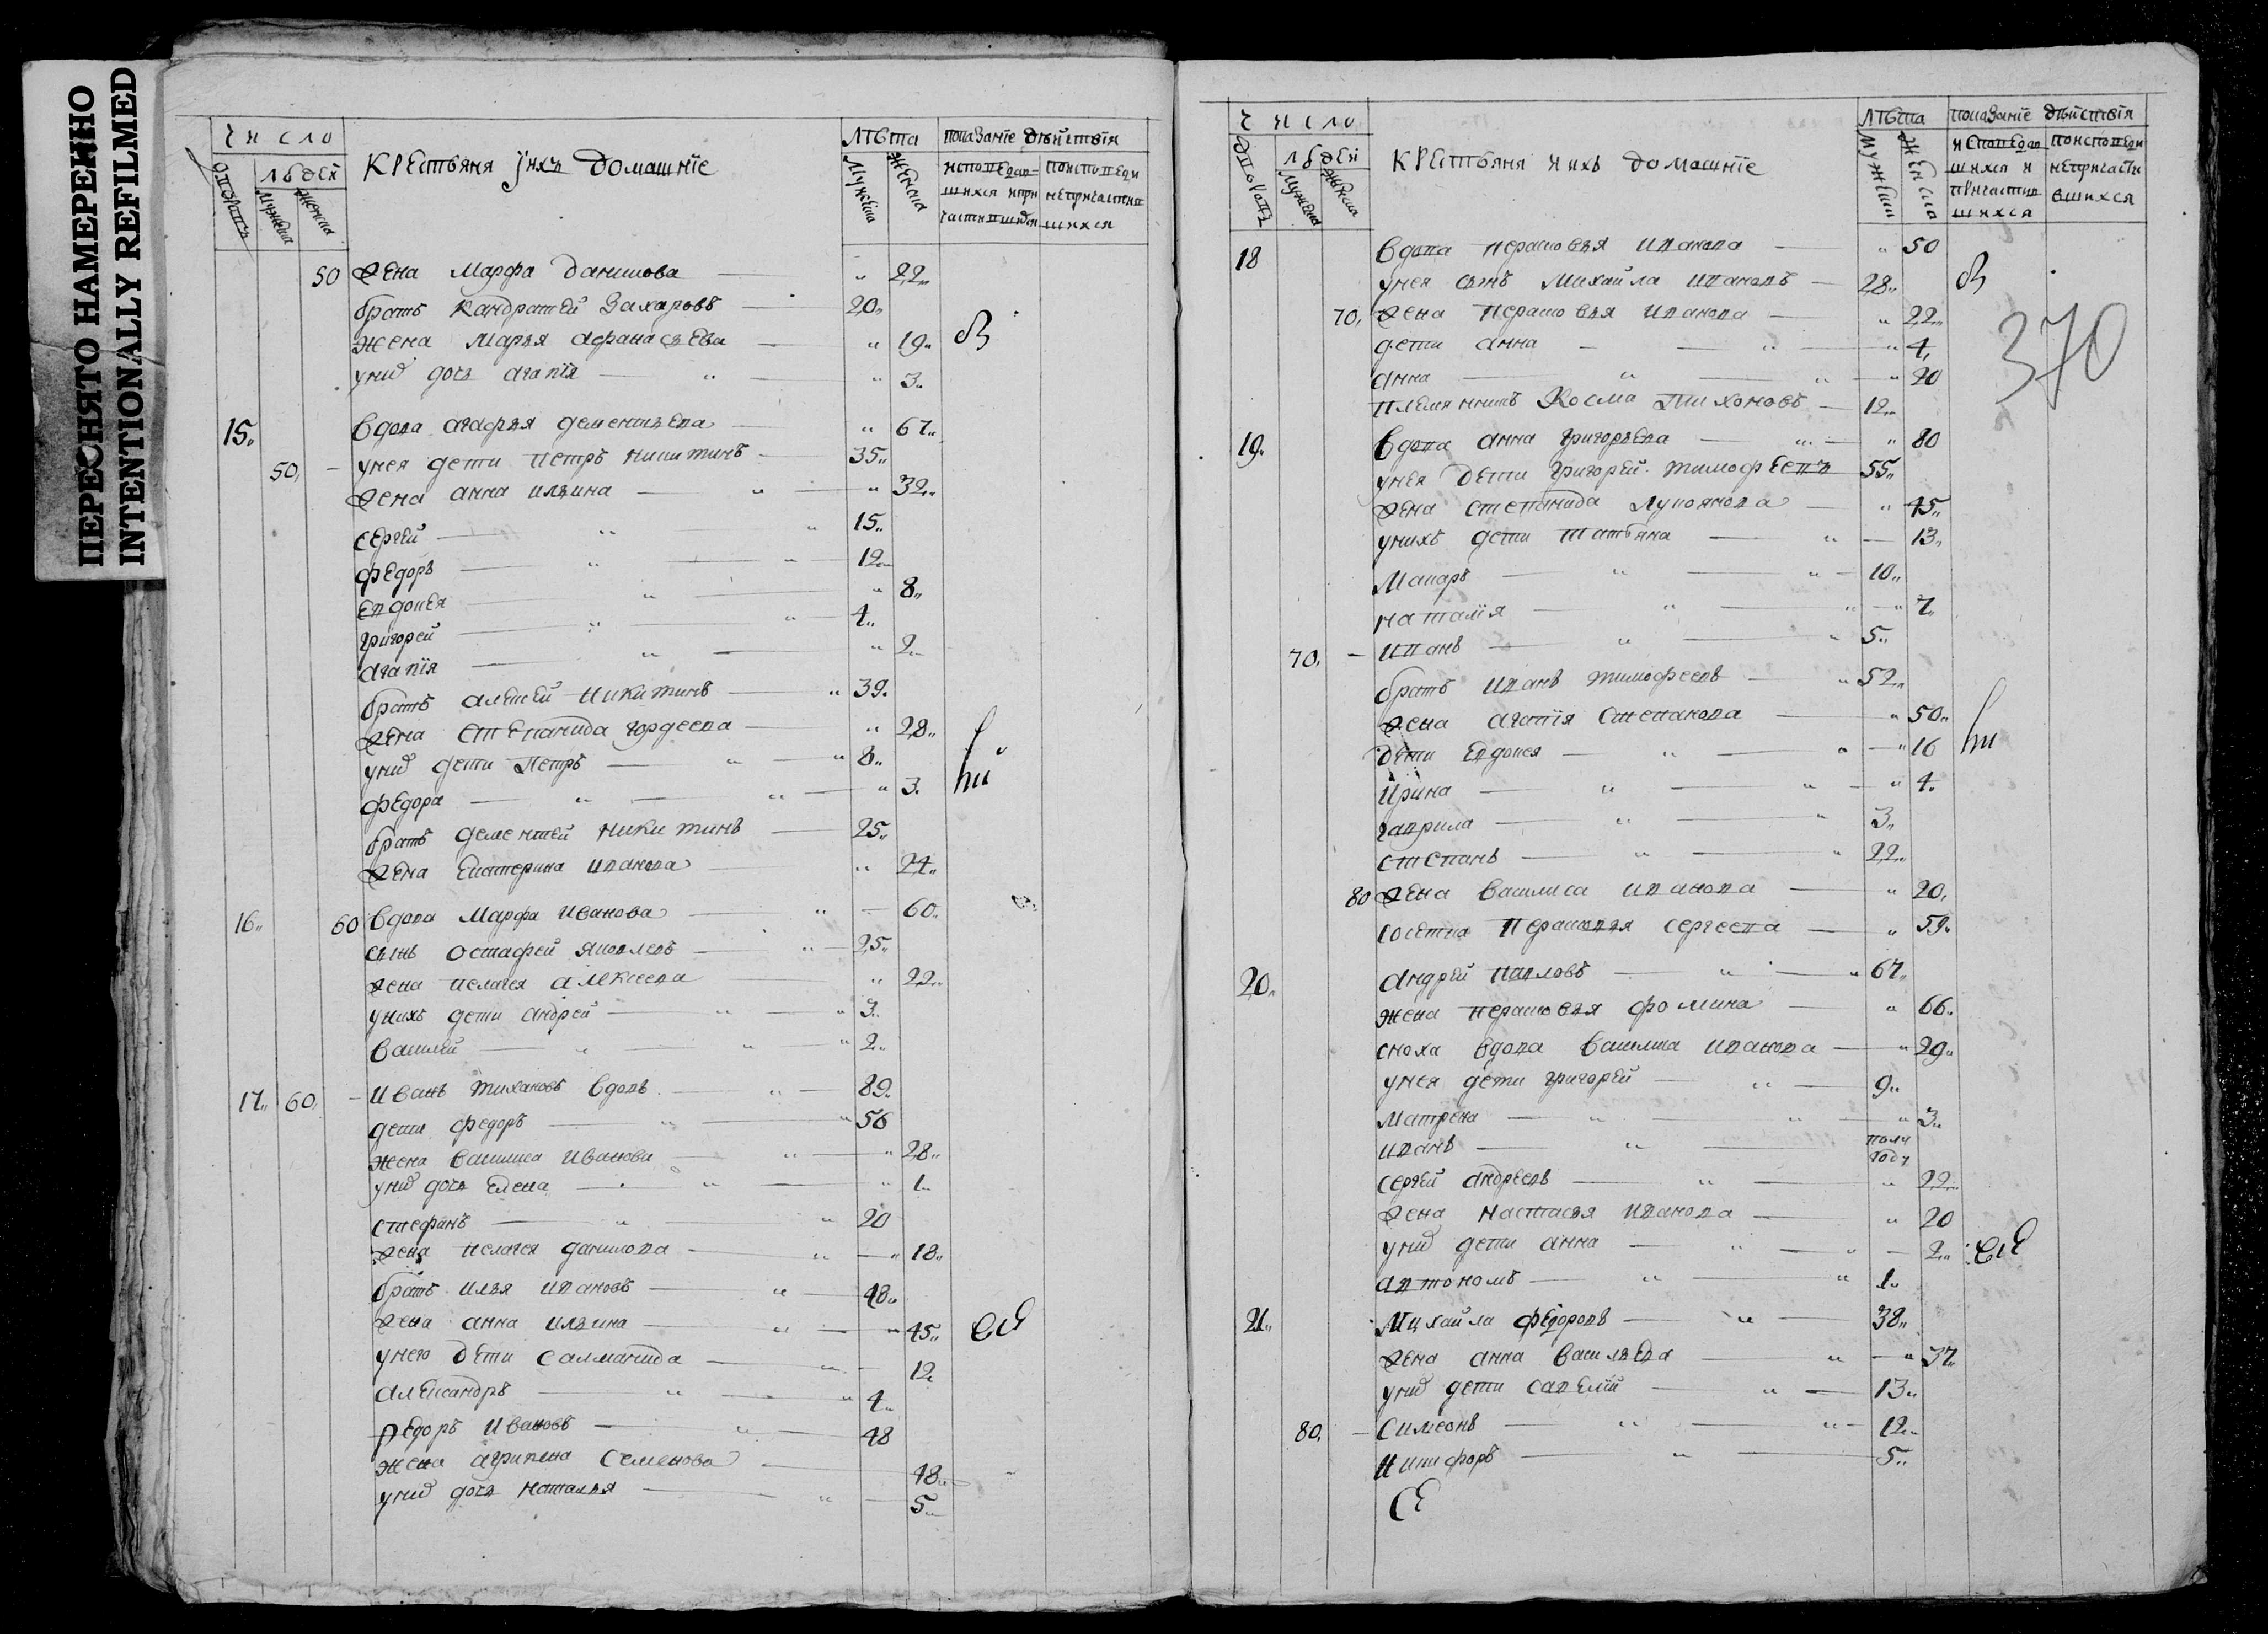 ПЕРЕСНЯТО НАМЕРЕННО
INTENTIONALLY REFILMED
Число
Людей
Дворовъ
Мужеска
Женска
Крестьяня у ихъ домашнїе
Лѣта
Мужеска
Женска
показанїе дѣйствїя
исповедав=
шихся и при
частившихся
поисповеди
непричастив
шихся
50 жена Марфа данилова 22
братъ Кандратей Захаровъ 20
жена Марья афанасьева 19
у нид дочь агапїя 3
15 вдова агафья дементьева 67
50 у нея дети петръ никитинъ 35
жена анна ильина 32
сергей 15
федоръ 12
евдокея 8
григорей 4
агапїя 2
братъ алексей никитинъ 39
жена степанида гордеева 28
у нид дети петръ 8
федора 3
братъ дементей никитинъ 25
жена екатерина иванова 24
16 60 вдова Марфа иванова 60
сынъ остафей яковлевъ 25
жена пелагея алексеева 22
у нихъ дети андрей 3
василей 2
17 60 иванъ тихановъ вдовъ 89
дети федоръ 56
жена василиса иванова 28
у нид дочь елена 1
стефанъ 20
жена пелагея данилова 18
братъ илья ивановъ 48
жена анна ильина 45
у него дети салманида 12
александръ 4
федоръ ивановъ 48
жена агрипена семенова 48
у нид дочь наталья 5
Число
Людей
Дворовъ
Мужеска
Женска
Крестьяня и ихъ домашнїе
Лѣта
Мужеска
Женска
показанїе дѣйствїя
исповедав
шихся и
причастив
шихся
поисповеди
непричасти
вшихся
370
18 вдова парасковья иванова 50
у нея сынъ Михайла ивановъ 28
70 жена парасковья иванова 22
дети анна 4
анна 20
племянникъ Косма тихоновъ 12
19 вдова анна григорьева 80
у нея дети григорей тимофеевъ 55
жена степанида лукоянова 45
у нихъ дети татьяна 13
Макаръ 10
наталїя 7
70 иванъ 5
братъ иванъ тимофеевъ 52
жена агапїя степанова 50
дети евдокея 16
ирина 4
гаврила 3
степанъ 22
80 жена василиса иванова 20
парасковья сергеева 59
20 андрей павловъ 67
жена парасковья фомина 66
сноха вдова василиса иванова 29
у нея дети григорей 9
матрена 3
иванъ полу году
сергей андреевъ 22
жена настасья иванова 20
у нид дети анна 2
автономъ 1
21 Михайла федоровъ 38
жена анна васильева 37
у нид дети савелїй 13
80 симеонъ 12
никифоръ 5